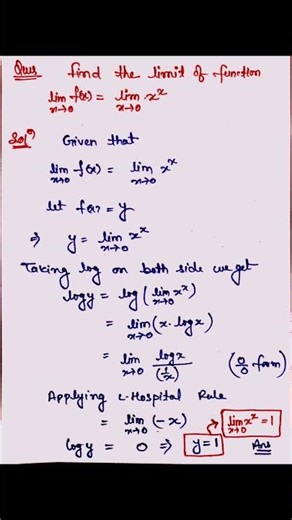 Ques Find the limit of function
lim x→0 f(x) = lim x→0 x^x
Solⁿ Given that
lim x→0 f(x) = lim x→0 x^x
let f(x) = y
⇒ y = lim x→0 x^x
Taking log on both side we get
log y = log(lim x→0 x^x)
= lim x→0 (x·log x)
= lim x→0 log x / (1/x) (0/0 form)
Applying L-Hospital Rule
= lim x→0 (-x) lim x→0 x^x = 1
log y = 0 ⇒ y = 1 Ans